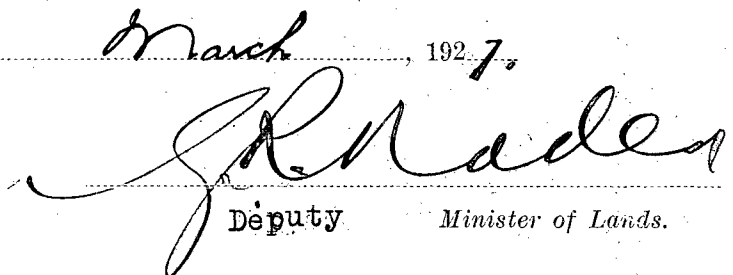 March, 1927.
G. R. Naden
Deputy Minister of Lands.